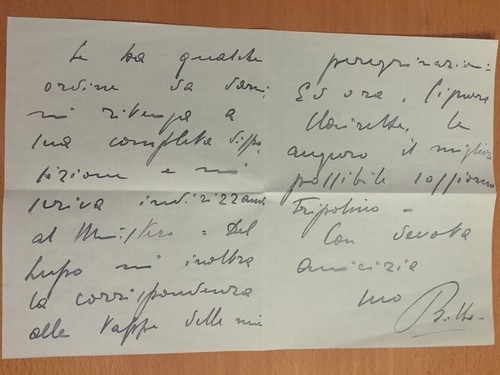 Se ha qualche
ordine da darmi,
mi ritenga a
sua completa dispo
sizione e mi
scriva indirizzando
al Ministero = Del
Lupo mi inoltra
la corrispondenza
alle tappe delle mie
peregrinazioni =
Ed ora, Signora
le
auguro il miglior
possibile soggiorno
Tripolino -
Con devota
amicizia
suo